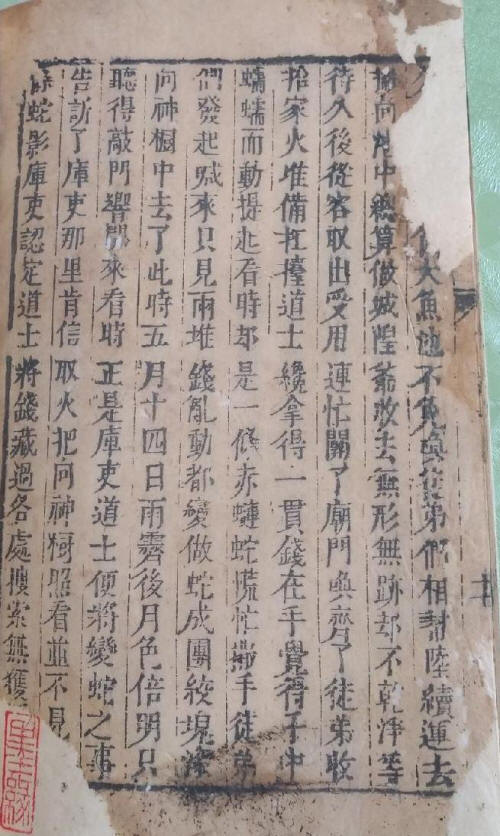 大魚池不免與徒弟們相幇陸續運去
向殿中總算做城隍爺收去無形無跡却不乾淨等
待久後從容取出受用連忙關了廟門喚齊了徒弟收
拾家火堆備扛擡道士纔拿得一貫錢在手覺得手中
蠕蠕而動提起看時却是一條赤蜒蛇慌忙撒手徒弟
們發起喊來只見兩堆錢亂動都變做蛇成團絞塊
向神櫥中去了此時五月十四日雨霽後月色倍明只
聽得敲門響開來看時正是庫吏道士便將變蛇之事
告訴了庫吏那里肯信取火把向神櫥照看並不見
蛇影庫吏認定道士將錢藏過各處搜索無獲